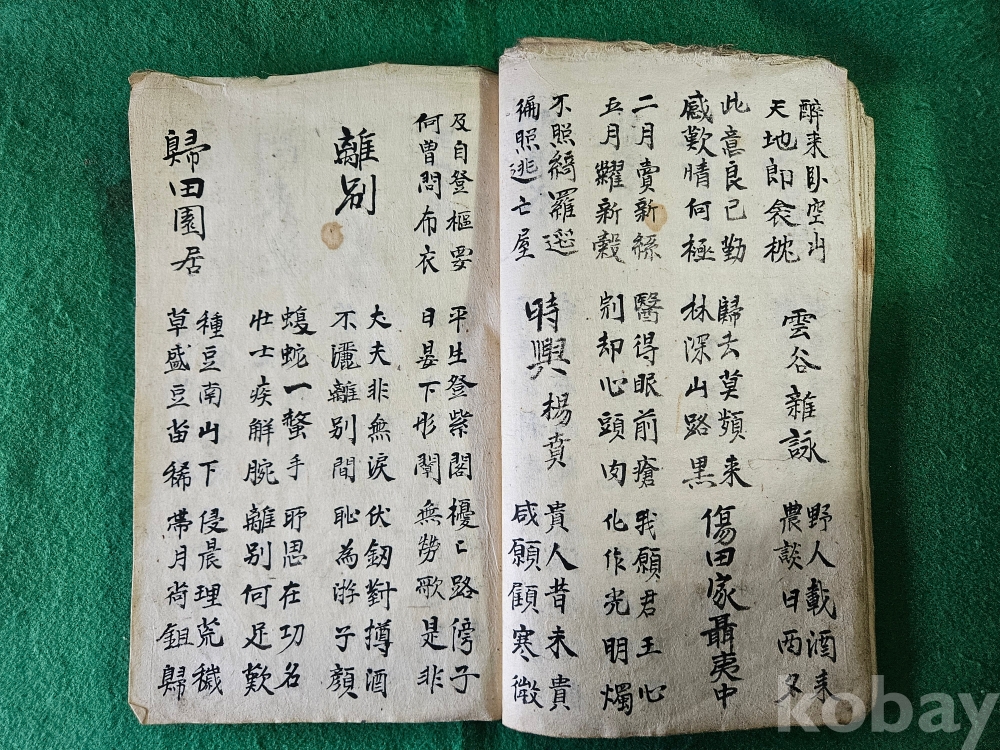 醉来卧空山
天地即衾枕
雲谷雜詠
野人載酒来
農談日西夕
此意良已勤
感歎情何極
歸去莫頻来
林深山路黑
傷田家聶夷中
二月賣新絲
五月糶新穀
醫得眼前瘡
剜却心頭肉
我願君王心
化作光明燭
不照綺羅筵
徧照逃亡屋
時興楊賁
貴人昔未貴
咸願顧寒微
及自登樞要
何曾問布衣
平生登紫閣
日晏下彤闈
擾〻路傍子
無勞歌是非
離別
丈夫非無淚
不灑離別間
仗釰對樽酒
恥為游子顏
蝮蛇一螫手
壯士疾解腕
所思在功名
離別何足歎
歸田園居
種豆南山下
草盛豆苗稀
侵晨理荒穢
帶月荷鉏歸
kobay